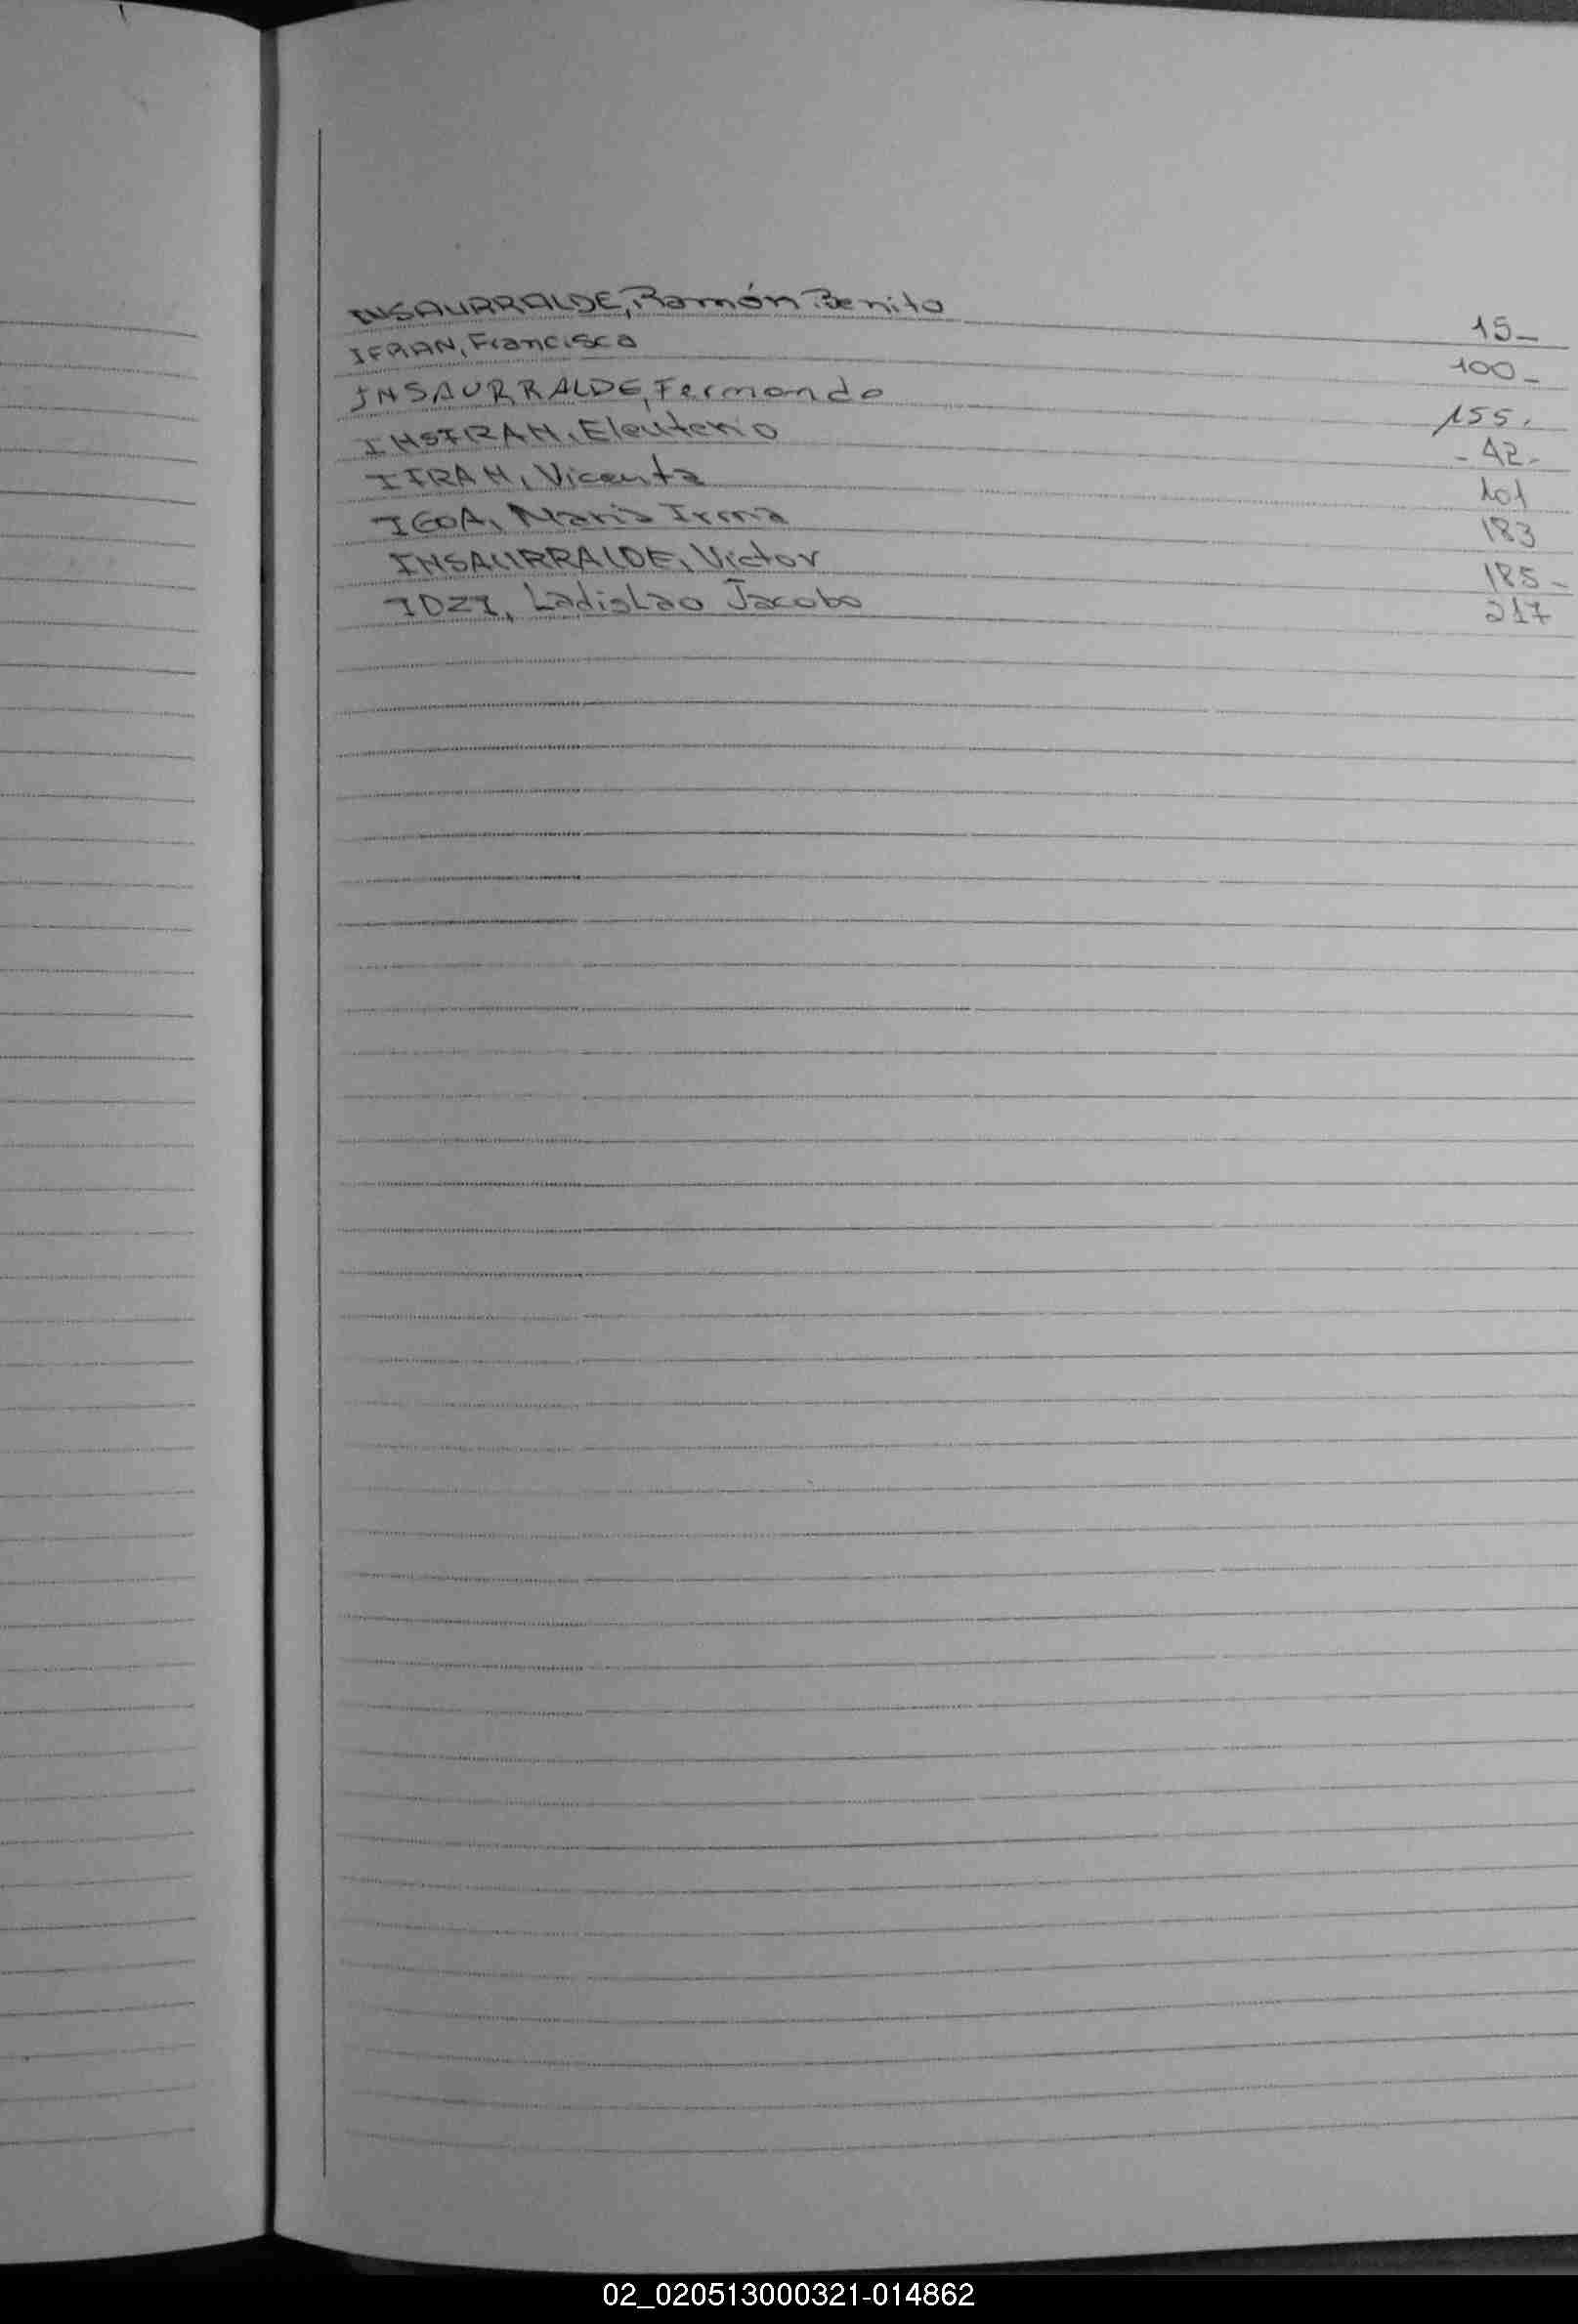 INSAURRALDE, Ramón Benito 15_
IFRAN, Francisca 100_
INSAURRALDE, Fernando 155.
INSFRAN, Eleuterio -42-
IFRAN, Vicenta 101
IGOA, Maria Irma 183
INSAURRALDE, Victor 185-
IDZI, Ladislao Jacobo 217
02_020513000321-014862